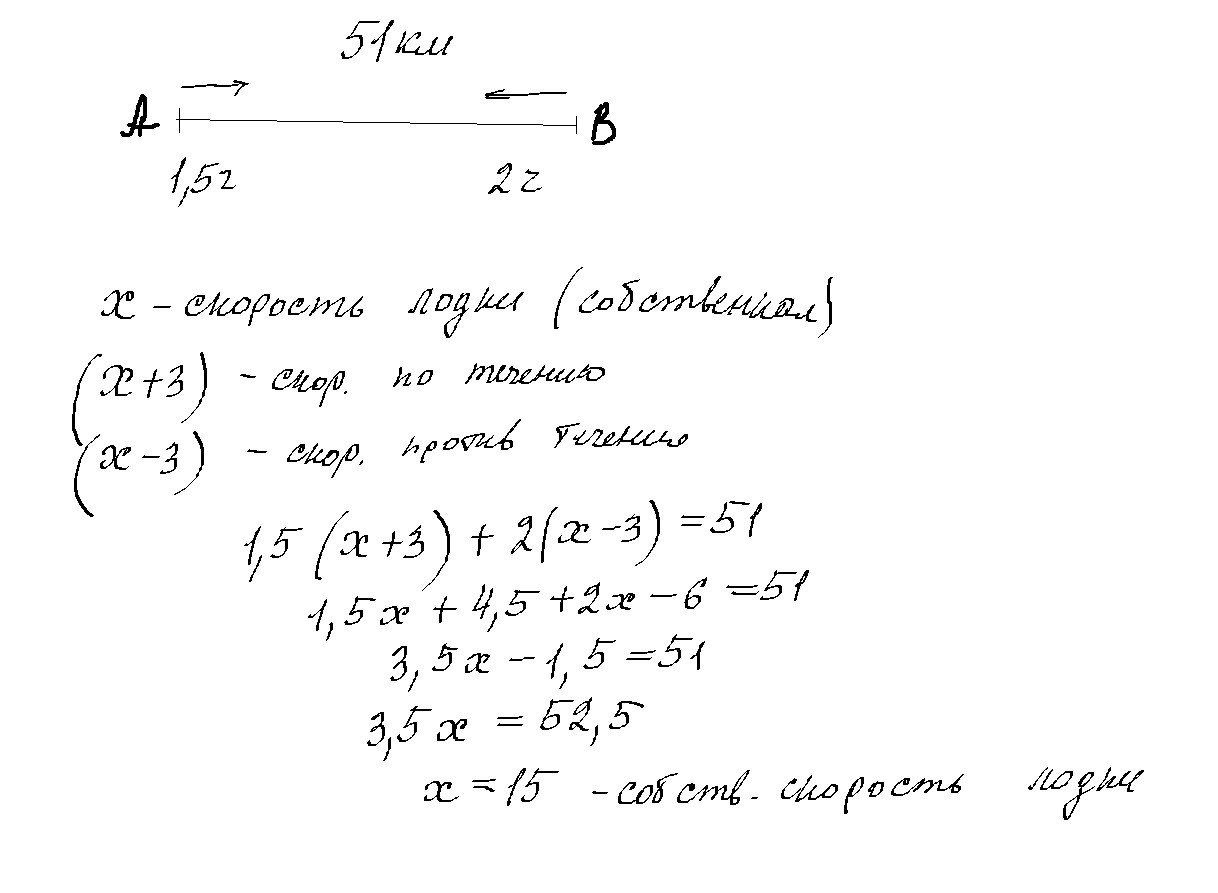 51 км
А В
1,5 ч 2 ч
x – скорость лодки (собственная)
(x+3) – скор. по течению
(x-3) – скор. против течению
1,5 (x+3) + 2(x-3) = 51
1,5x + 4,5 + 2x - 6 = 51
3,5x - 1,5 = 51
3,5x = 52,5
x = 15 - собств. скорость лодки